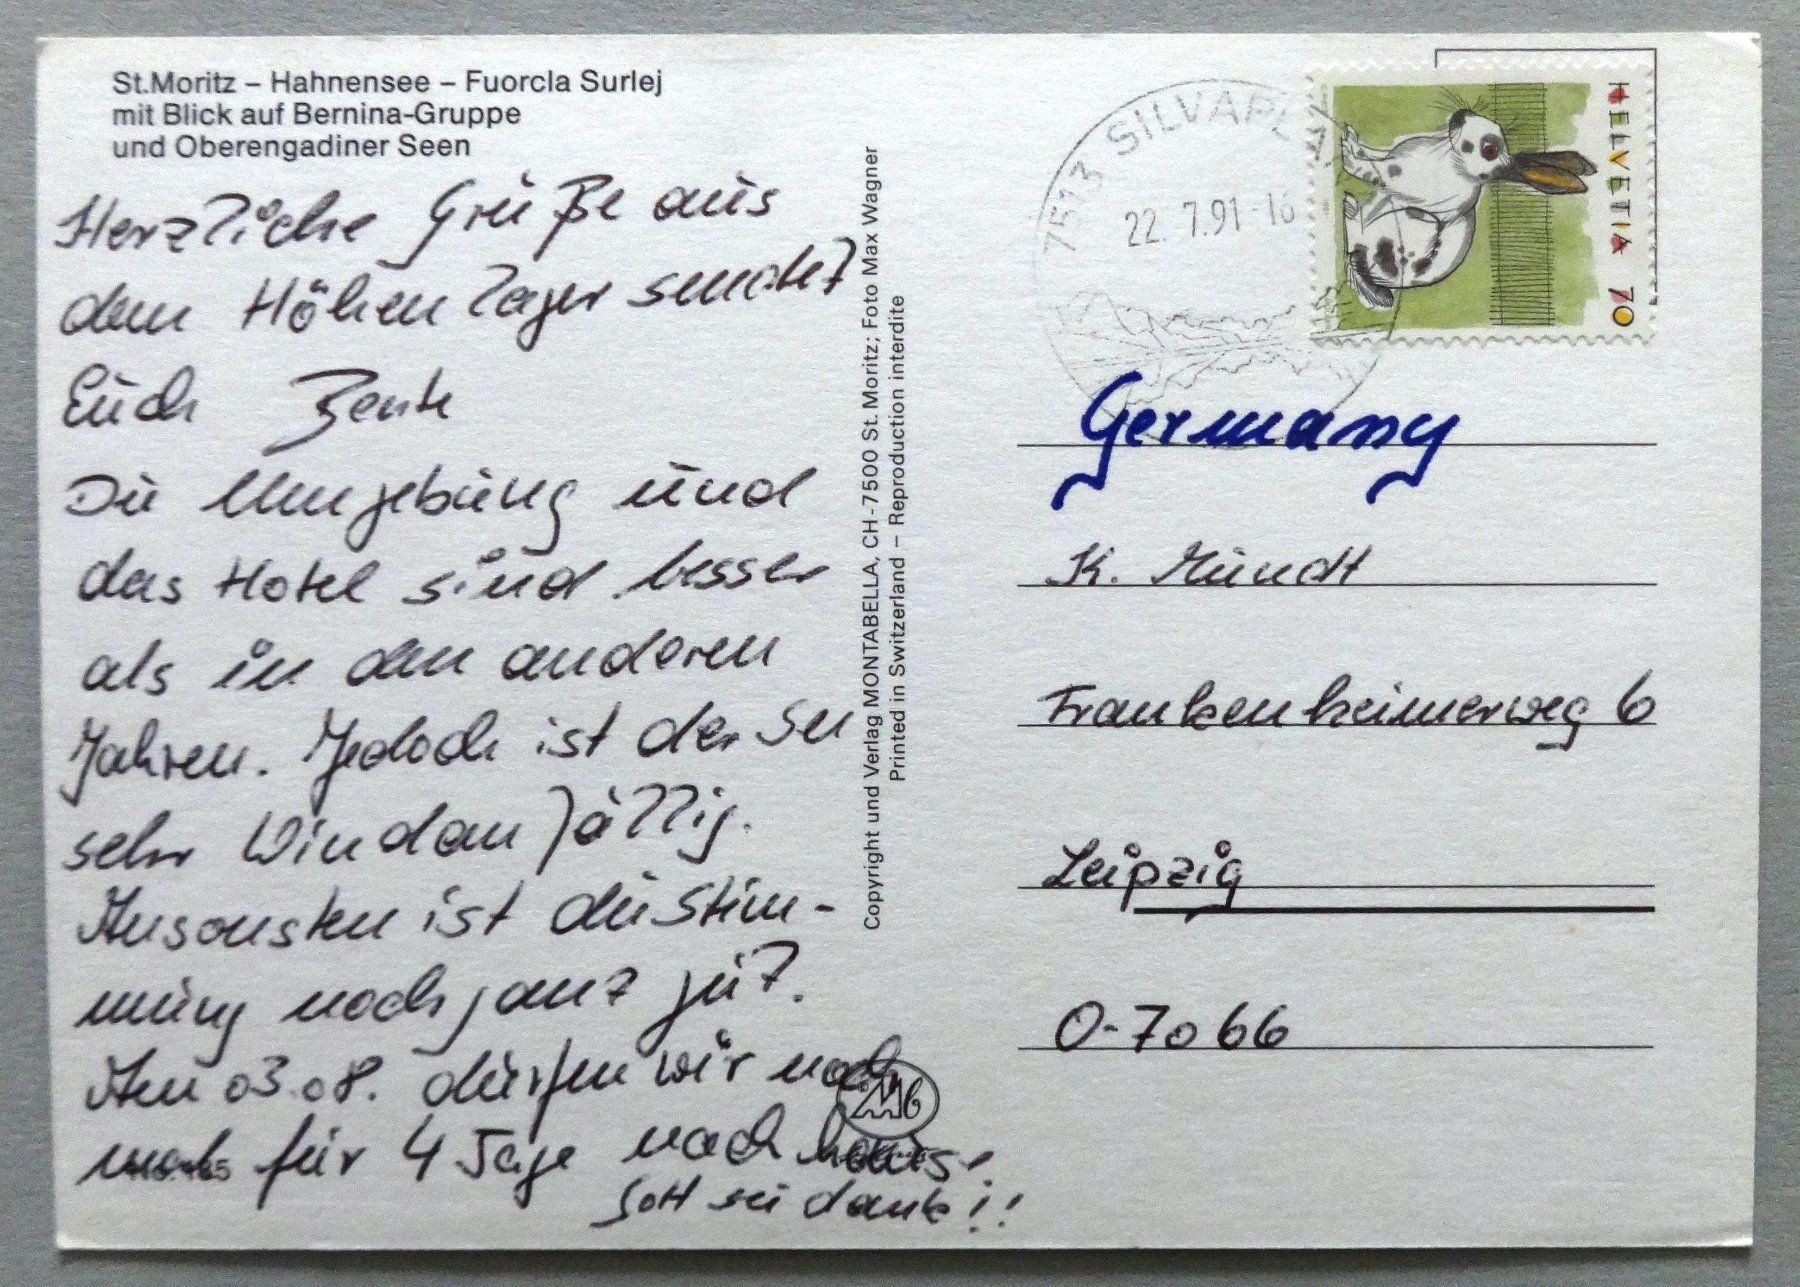 St.Moritz – Hahnensee – Fuorcla Surlej
mit Blick auf Bernina-Gruppe
und Oberengadiner Seen
Herzliche Grüße aus
dem Höhenlager sendet
Euch Bente
Die Umgebung und
das Hotel sind besser
als in den anderen
Jahren. Jedoch ist der See
sehr Windanfällig.
Ansonsten ist die Stim-
mung noch ganz gut.
Am 03.08. dürfen wir noch
mal für 4 Tage nach hause
Gott sei dank!!
Copyright und Verlag MONTABELLA, CH-7500 St. Moritz; Foto Max Wagner
Printed in Switzerland – Reproduction interdite
Mb
7513 SILVAPLA
22.7.91-16
HELVETIA 70
Germany
K. Mundt
Frankenheimerweg 6
Leipzig
O-7066